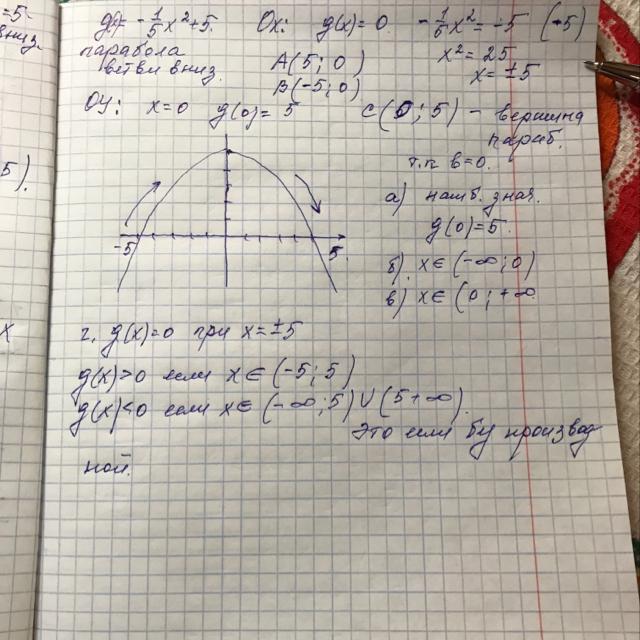 =5-
вниз.
5).
x
g(x)= -1/5x²+5.   Ox:   g(x)=0   -1/5x²=-5   (-5)
парабола   A(5; 0)   x²=25
ветви вниз.   B(-5; 0)   x=±5
Oy:   x=0   g(0)=5   C(0; 5) - вершина
параб.
т.к в=0.
а) наиб. знач.
g(0)=5.
-5   5
б) x∈(-∞; 0)
в) x∈(0; +∞
г. g(x)=0 при x=±5
g(x)>0 если x∈(-5; 5)
g(x)<0 если x∈(-∞; 5)∪(5+∞).
Это если бу производ
ной.